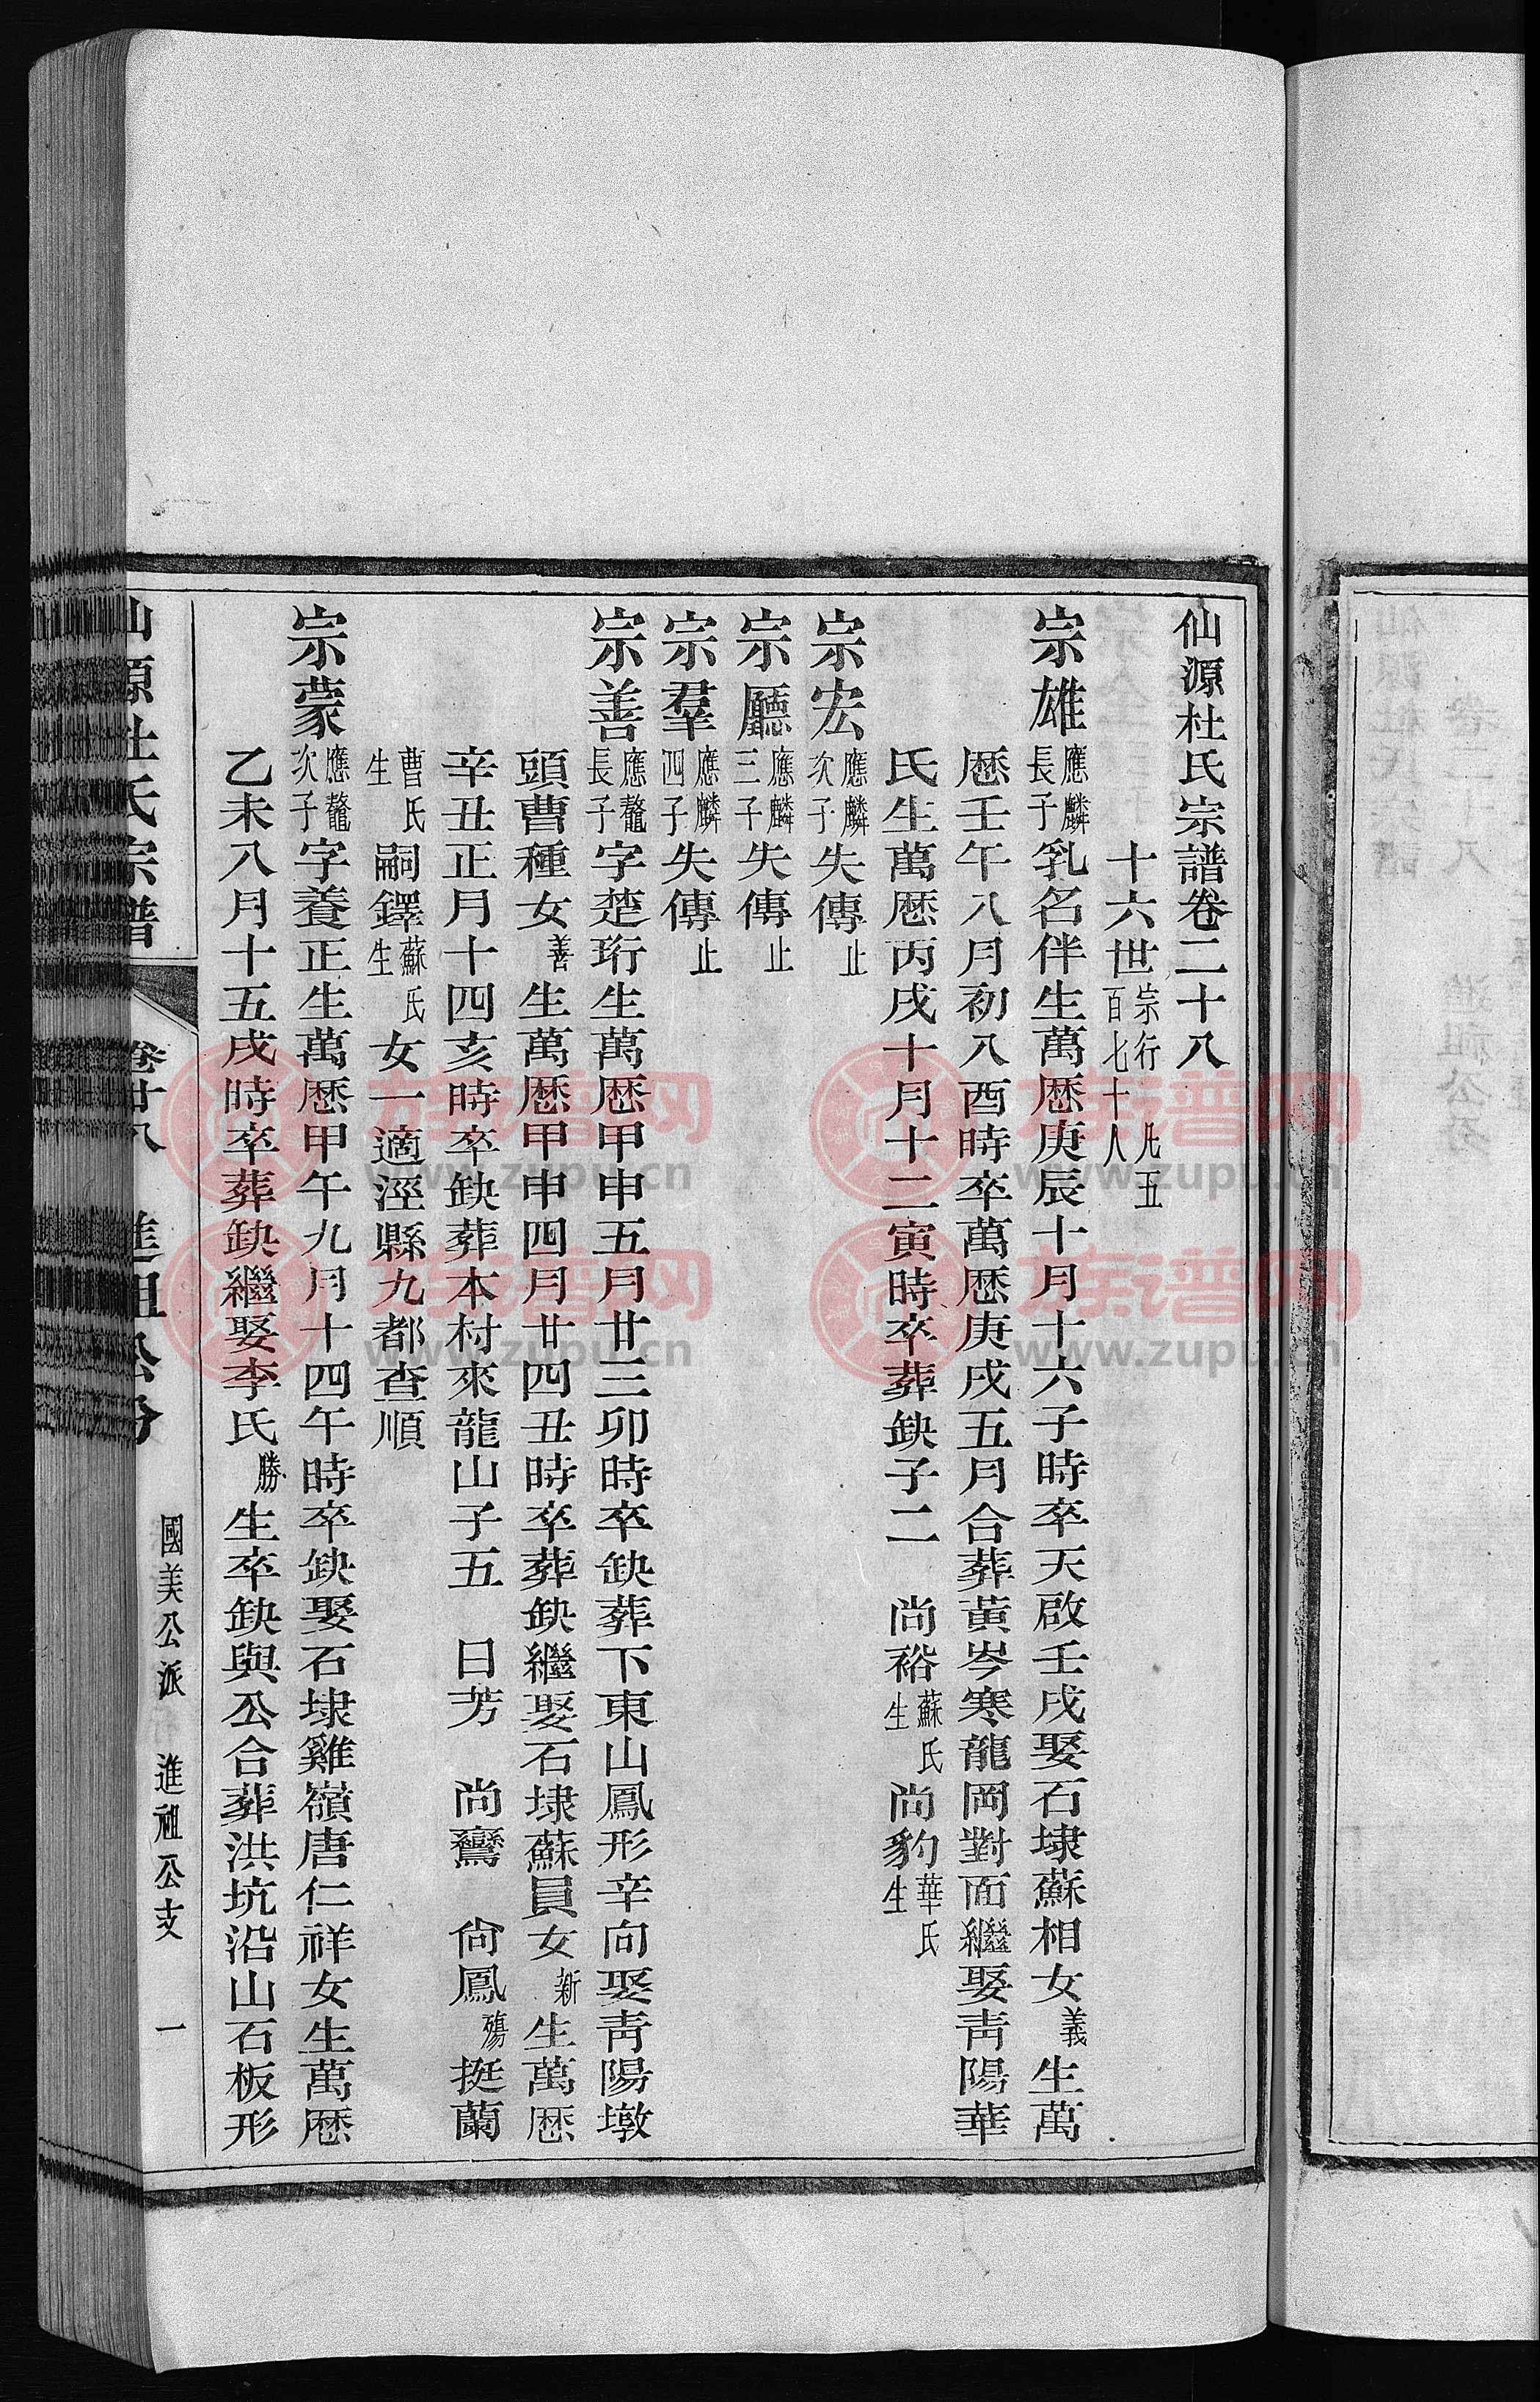 仙源杜氏宗譜卷二十八
十六世宗行凡五百七十人
宗雄應麟長子乳名伴生萬歷庚辰十月十六子時卒天啟壬戌娶石埭蘇相女義生萬
歷壬午八月初八酉時卒萬歷庚戌五月合葬黃岑寒龍岡對面繼娶靑陽華
氏生萬歷丙戌十月十二寅時卒葬缺子二　尚裕蘇氏生尚豹華氏生
宗宏應麟次子失傳止
宗廳應麟三子失傳止
宗羣應麟四子失傳止
宗善應鼇長子字楚珩生萬歷甲申五月廿三卯時卒缺葬下東山鳳形辛向娶靑陽墩
頭曹種女善生萬歷甲申四月廿四丑時卒葬缺繼娶石埭蘇員女新生萬歷
辛丑正月十四亥時卒缺葬本村來龍山子五　日芳　尚鸞　尙鳳殤挺蘭
曹氏生嗣鐸蘇氏生女一適涇縣九都查順
宗蒙應鼇次子字養正生萬歷甲午九月十四午時卒缺娶石埭雞嶺唐仁祥女生萬歷
乙未八月十五戌時卒葬缺繼娶李氏勝生卒缺與公合葬洪坑沿山石板形
仙源杜氏宗譜　卷廿八　進祖公分　國美公派　進祖公支　一
族谱网
www.zupu.cn
族谱网
www.zupu.cn
族谱网
www.zupu.cn
族谱网
www.zupu.cn